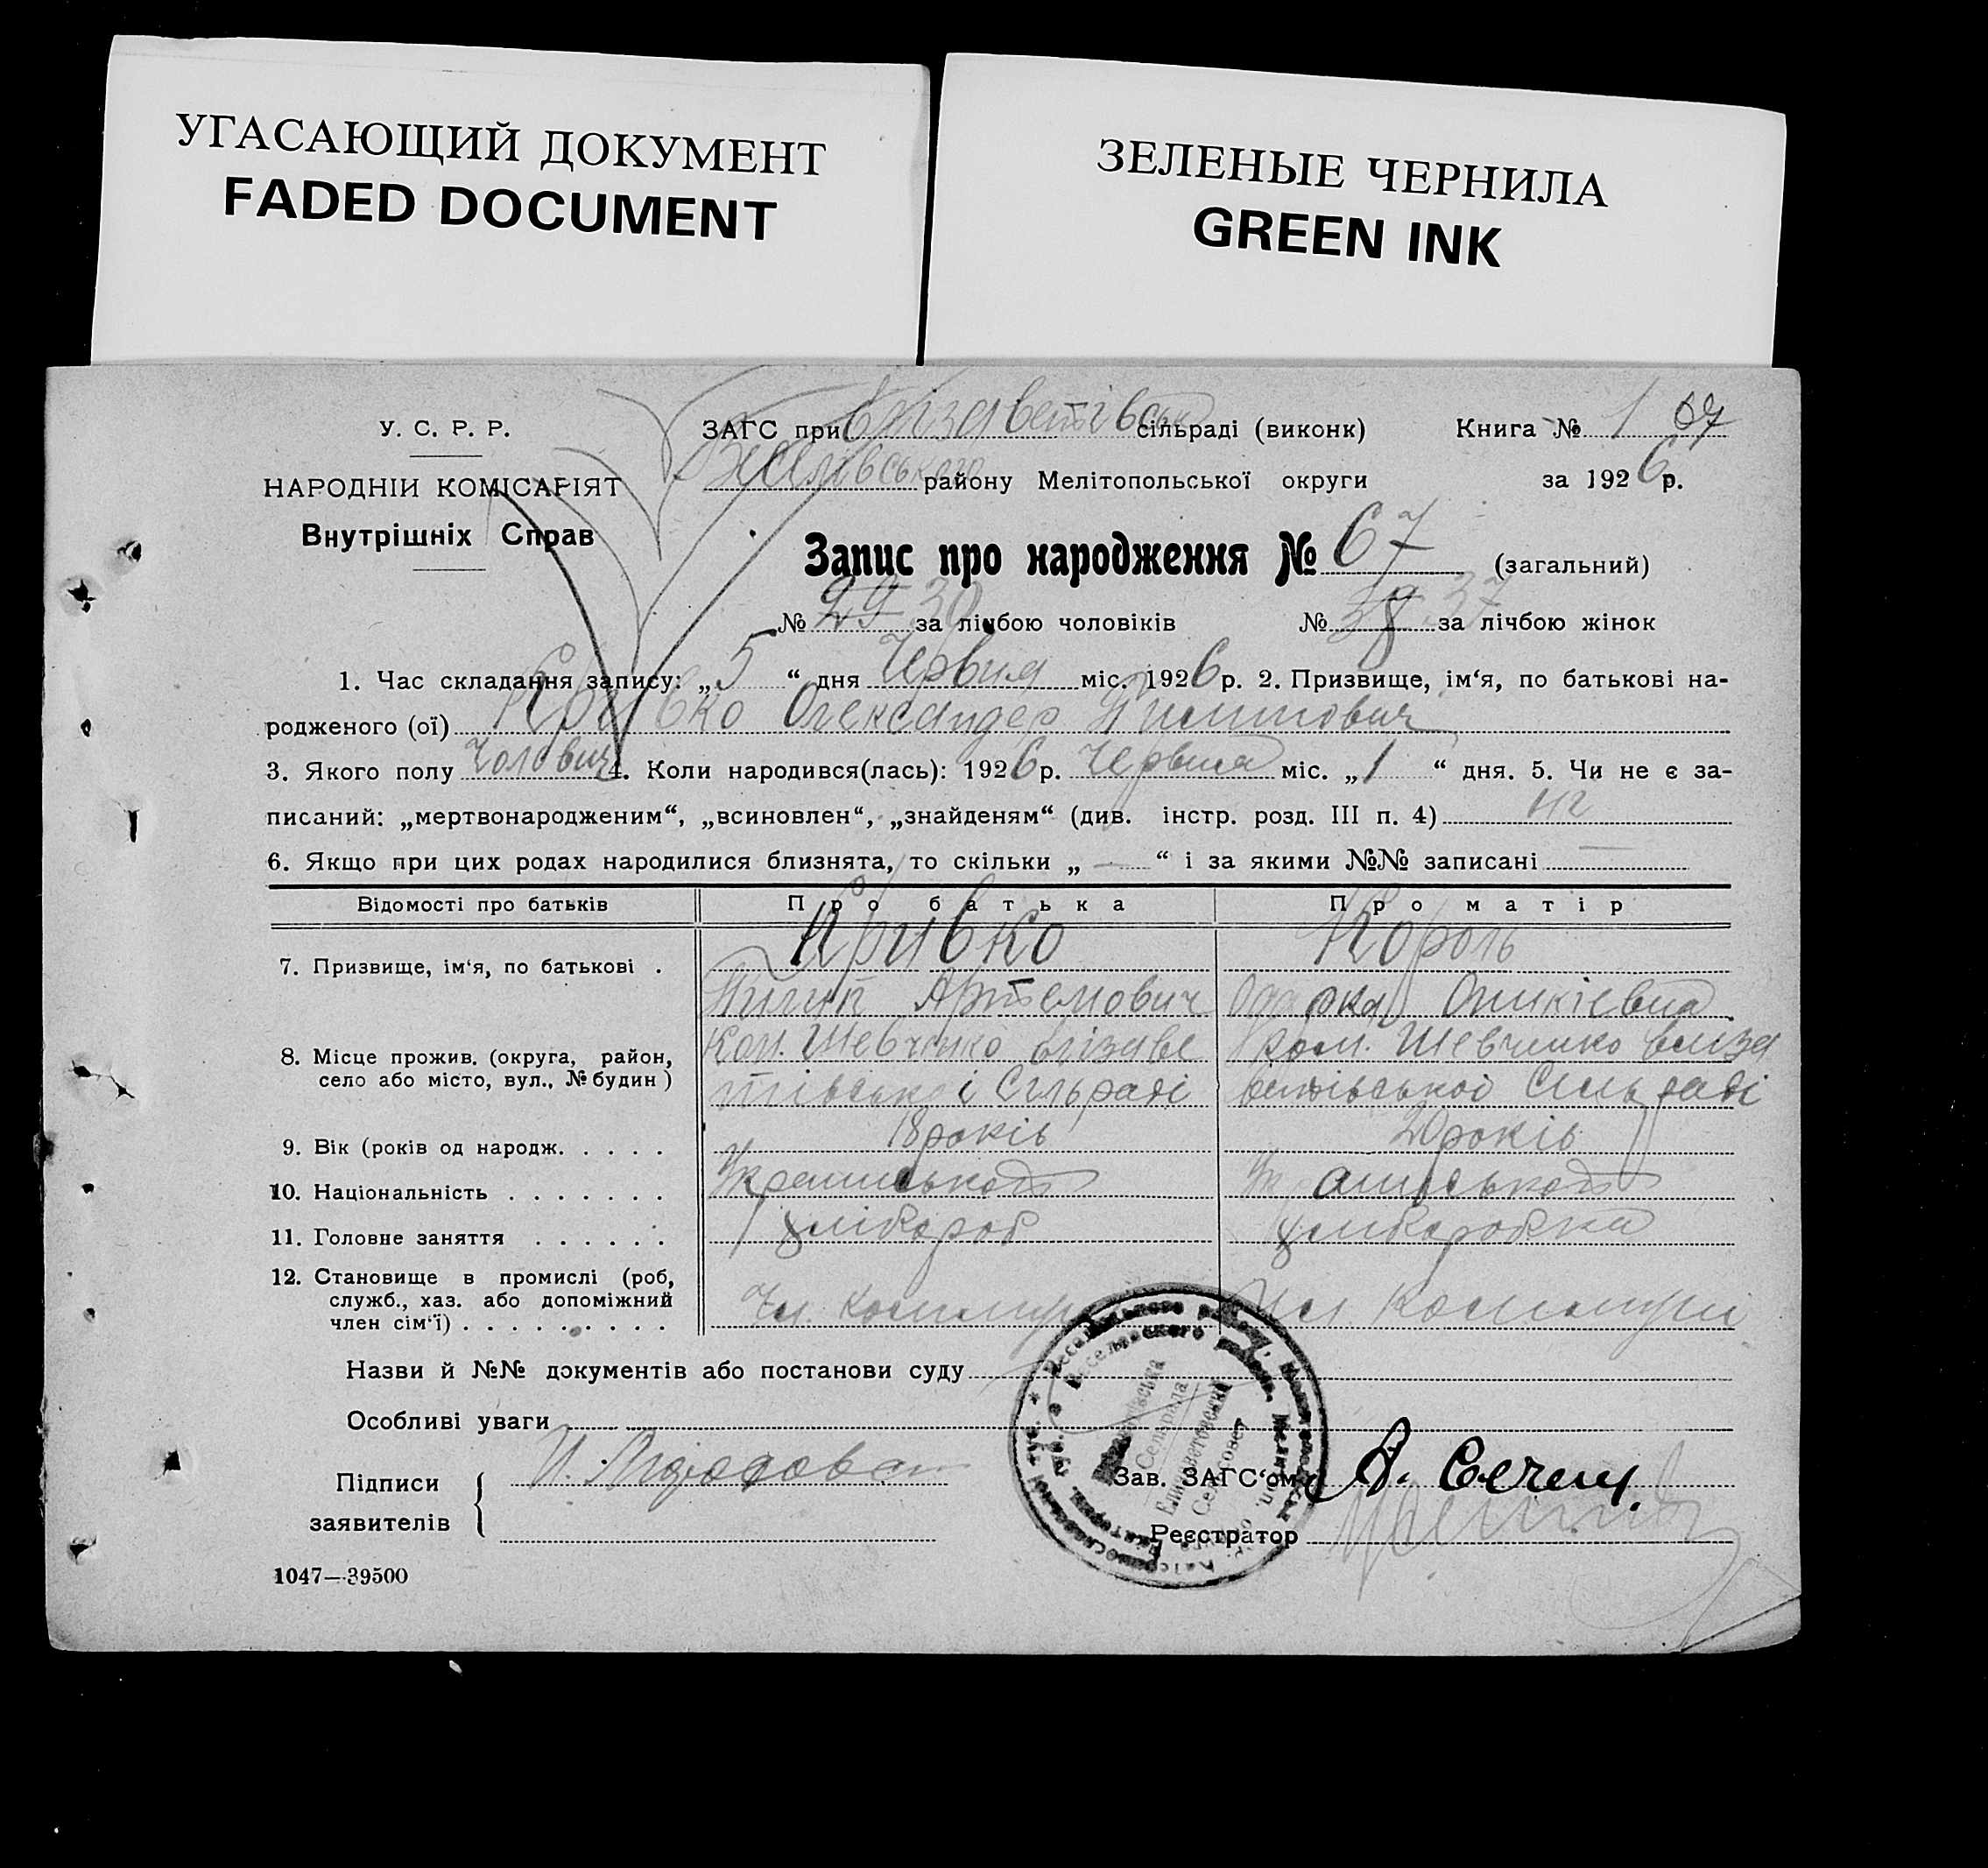 УГАСАЮЩИЙ ДОКУМЕНТ
FADED DOCUMENT
ЗЕЛЕНЫЕ ЧЕРНИЛА
GREEN INK
У. С. Р. Р.
НАРОДНІЙ КОМІСАРІЯТ
Внутрішніх Справ
ЗАГС при Єлізаветівськ сільраді (виконк)
Книга № 1 67
району Мелітопольської округи
за 1926 р.
Запис про народження № 67 (загальний)
№ 29 30 за лічбою чоловіків № 38 37 за лічбою жінок
1. Час складання запису: „5“ дня Червня міс. 1926 р. 2. Призвище, ім‘я, по батькові на-
родженого (ої) Кривко Олександер Пилипович
3. Якого полу Чолович 4. Коли народився(лась): 1926 р. Червня міс. „1“ дня. 5. Чи не є за-
писаний: „мертвонародженим“, „всиновлен“, „знайденям“ (див. інстр. розд. III п. 4) ні
6. Якщо при цих родах народилися близнята, то скільки „ — “ і за якими №№ записані —
Відомості про батьків Про батька Про матір
7. Призвище, ім‘я, по батькові . Кривко Король
Пилип Артемович Одарка
8. Місце прожив. (округа, район, Ком. Шевченко Єлізаве Ком. Шевченко Єлиза
село або місто, вул., № будин) тівської Сільраді ветівської Сільраді
9. Вік (років од народж. . . . . 18 років 20 років
10. Національність . . . . . . .
11. Головне заняття . . . . . . хлібороб хлиборобка
12. Становище в промислі (роб,
служб., хаз. або допоміжний
член сім‘ї) . . . . . . . . . Чл. комуни Чл. комуни
Назви й №№ документів або постанови суду
Особливі уваги
Підписи
заявителів
Зав. ЗАГС‘ом
Реєстратор
1047—39500